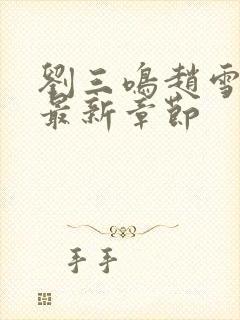 劉三鳴趙雪
最新章節
手手